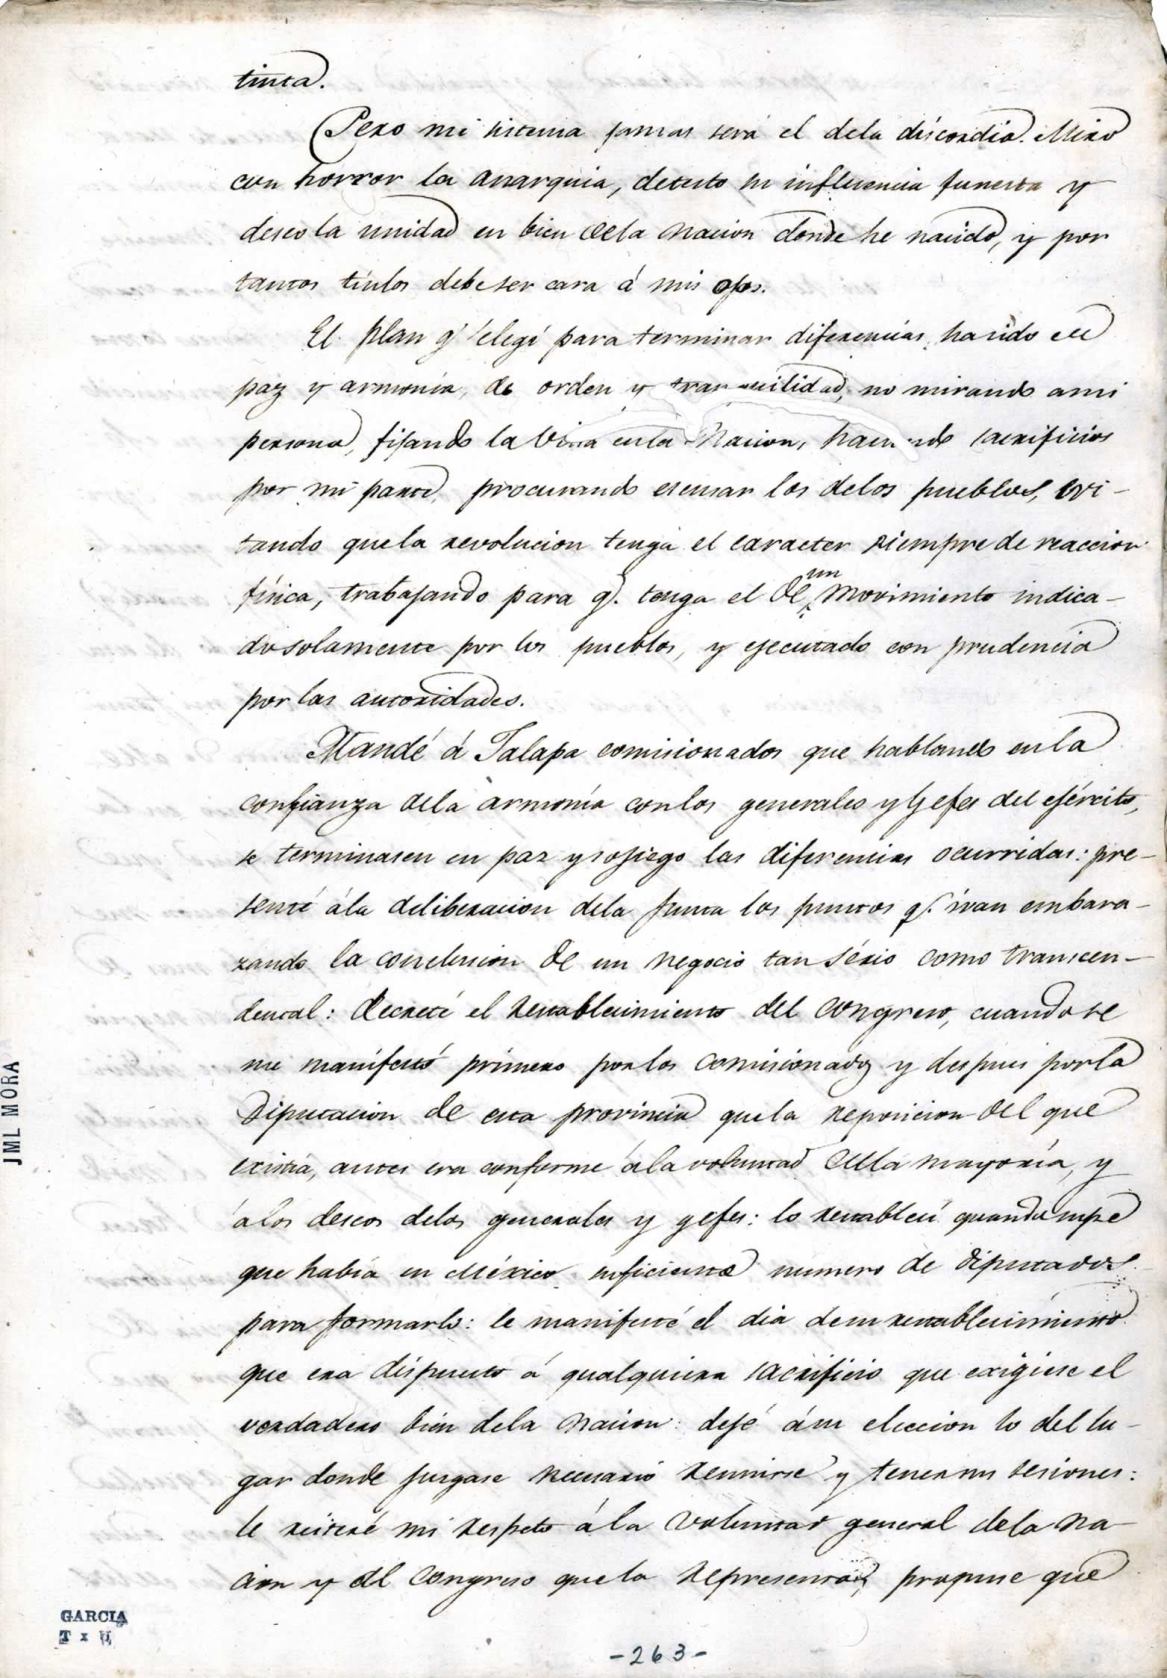 tinta.
Pero mi sistema jamas será el dela discordia. Miro
con horror la anarquia, detesto su influencia funesta y
deseo la unidad en bien dela Nacion donde he nacido, y por
tantos títulos debe ser cara á mis ojos.
El plan q' elegí para terminar diferencias, ha sido de
paz y armonía, de orden y tranquilidad, no mirando ami
persona, fijando la vista enla Nacion, haciendo sacrificios
por mi parte, procurando escusar los delos pueblos, evi-
tando quela revolucion tenga el caracter siempre de reaccion
física, trabajando para q. tenga el de un movimiento indica-
do solamente por los pueblos, y ejecutado con prudencia
por las autoridades.
Mandé á Jalapa comisionados que hablando enla
confianza dela armonía conlos generales y Gefes del ejército,
se terminasen en paz y sosiego las diferencias ocurridas: pre-
senté ála deliberacion dela Junta los puntos q. ivan embara-
zando la conclusion de un negocio tan sério como transcen-
dental: decreté el restablecimiento del Congreso, cuando se
me manifestó primero porlos comisionados y despues porla
Diputacion de esta provincia quela reposicion del que
existia, antes era conforme ála voluntad dela mayoría, y
álos deseos delos generales y gefes: lo restablecí quando supe
que había en México suficiente numero de diputados
para formarlo: le manifesté el dia desu restablecimiento
que era dispuesto á qualquiera sacrificio que exigiese el
verdadero bien dela Nacion: dejé ásu eleccion lo del lu-
gar donde juzgase necesario reunirse y tener sus sesiones:
le reiteré mi respeto ála voluntad general dela Na-
cion y del Congreso quela representa, propuse que
-263-
JML MORA
GARCIA